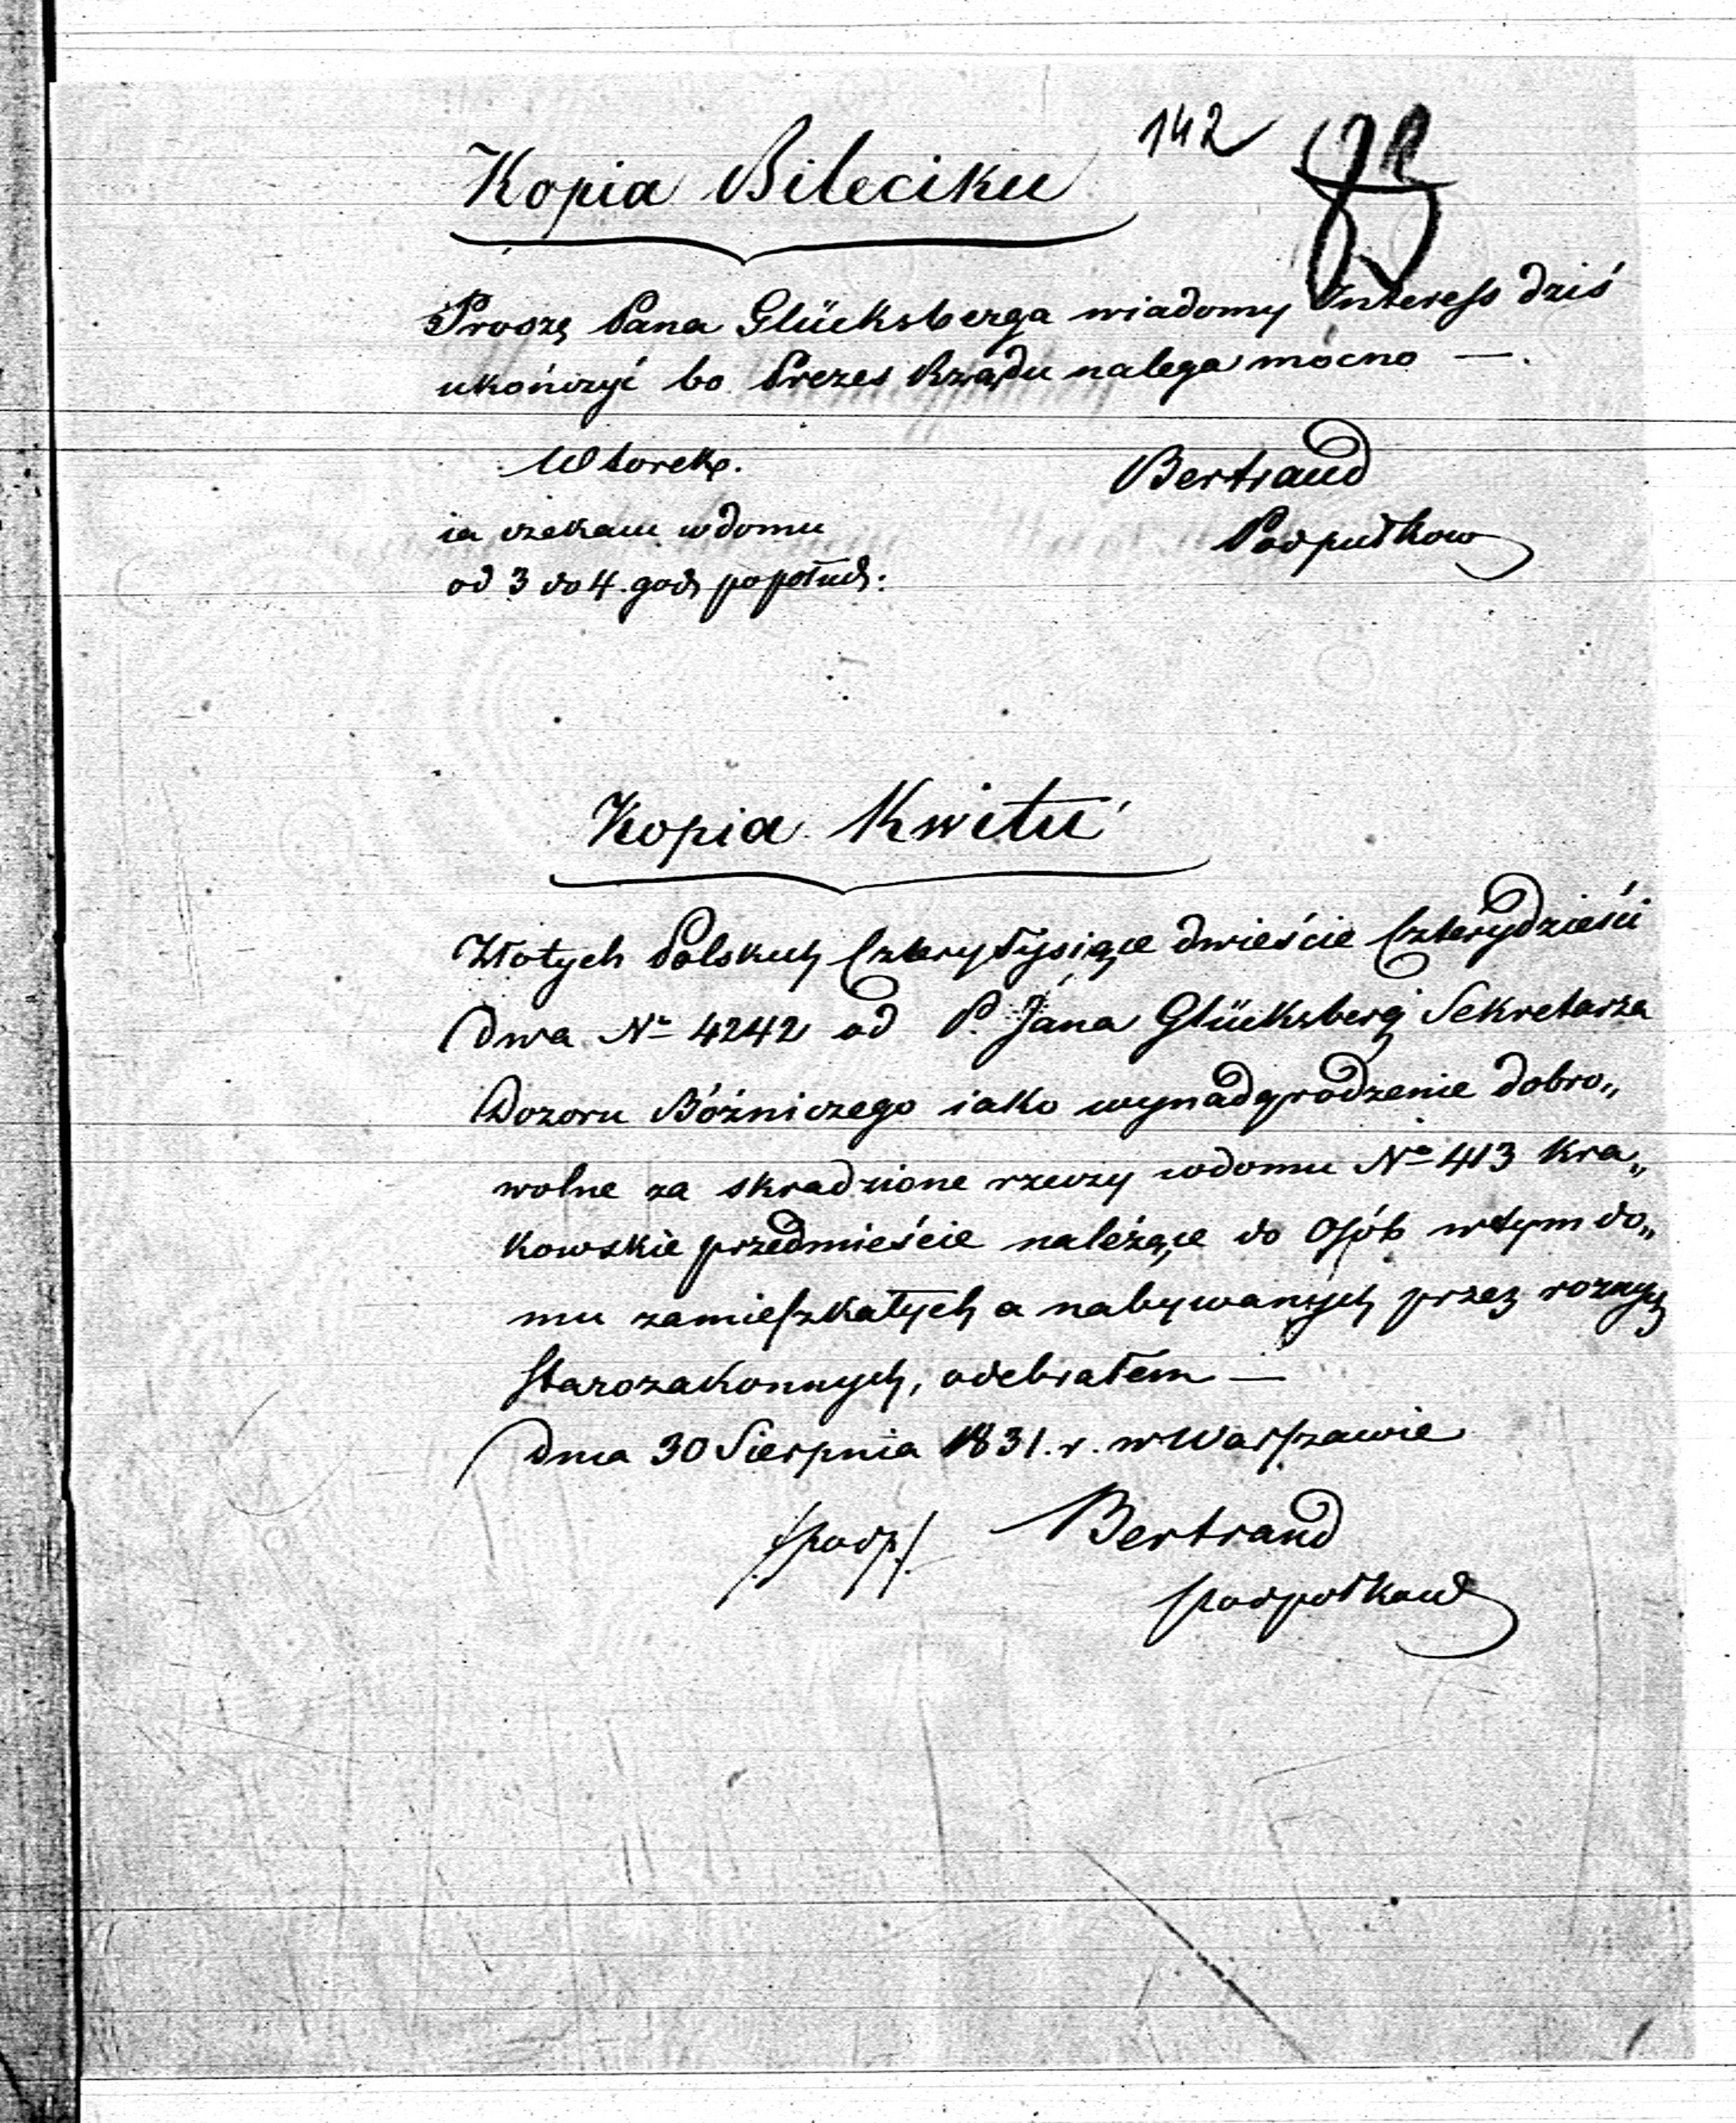 142
Kopia Bileciku
Proszę Pana Glücksberga wiadomy Interess dziś
ukończyć bo Prezes Rządu nalega mocno —.
Wtorek.
Bertrand
ia czekam w domu
Podpułkow
od 3 do 4 god popołud:
Kopia Kwitu
Złotych Polskich Cztery Tysiące dwieście Czterydzieści
Dwa No 4242 od P. Jana Glücksberg Sekretarza
Dozoru Bóżniczego iako wynadgrodzenie dobro„
wolne za skradzione rzeczy w domu No 413 Kra„
kowskie przedmieście należące do Osób w tym do„
mu zamieszkałych a nabywanych przez roznych
Starozakonnych, odebrałem —
Dnia 30 Sierpnia 1831. r. w Warszawie
/podp/ Bertrand
podpołkow